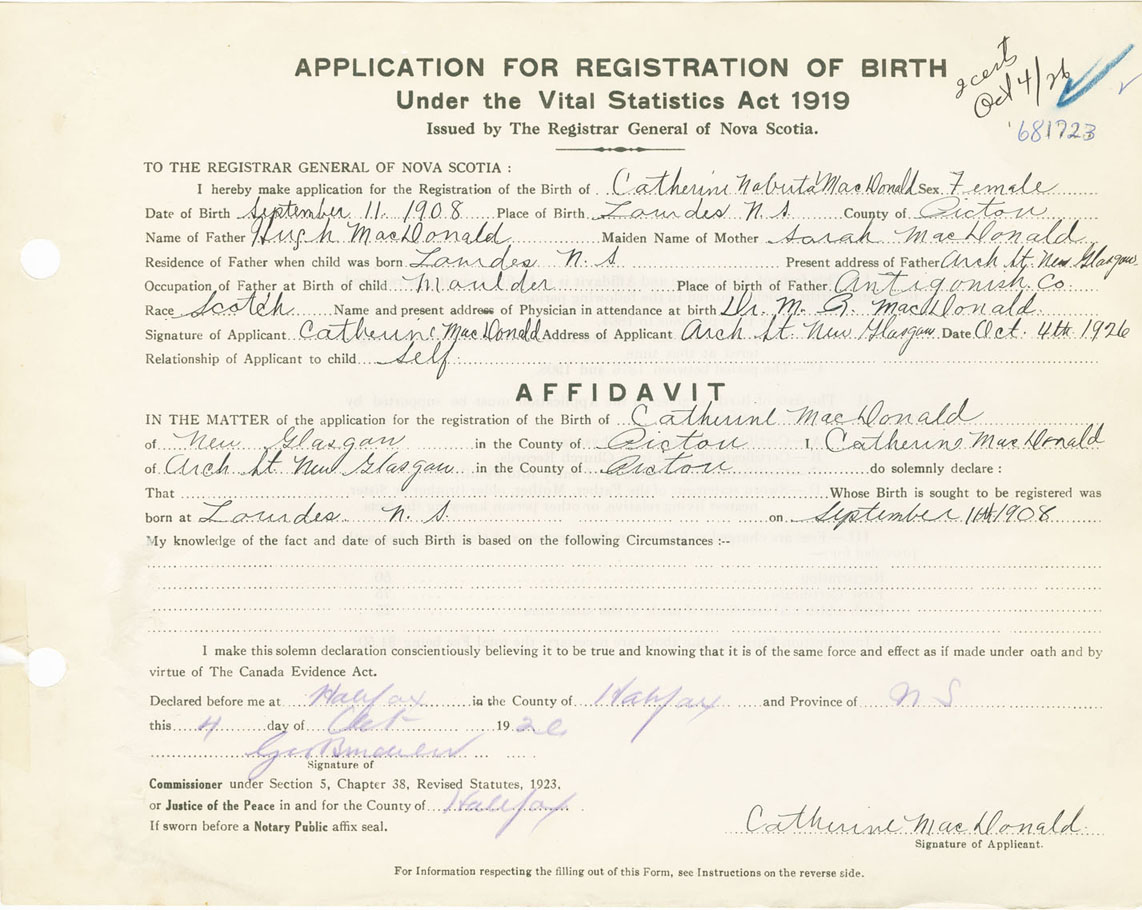 APPLICATION FOR REGISTRATION OF BIRTH
2 certs
Oct 4/26
Under the Vital Statistics Act 1919
681723
Issued by The Registrar General of Nova Scotia.
TO THE REGISTRAR GENERAL OF NOVA SCOTIA :
I hereby make application for the Registration of the Birth of Catherine MacDonald Sex Female
Date of Birth September 11. 1908 Place of Birth Lourdes N. S. County of Pictou
Name of Father Hugh MacDonald Maiden Name of Mother Sarah MacDonald
Residence of Father when child was born Lourdes N. S Present address of Father Arch St. New Glasgow
Occupation of Father at Birth of child Moulder Place of birth of Father Antigonish Co.
Race Scotch Name and present address of Physician in attendance at birth Dr. M. R. MacDonald
Signature of Applicant Catherine MacDonald Address of Applicant Arch St. New Glasgow Date Oct. 4th 1926
Relationship of Applicant to child Self
AFFIDAVIT
IN THE MATTER of the application for the registration of the Birth of Catherine MacDonald
of New Glasgow in the County of Pictou I, Catherine MacDonald
of Arch St. New Glasgow in the County of Pictou do solemnly declare :
That Whose Birth is sought to be registered was
born at Lourdes N. S. on September 11th 1908
My knowledge of the fact and date of such Birth is based on the following Circumstances :--
I make this solemn declaration conscientiously believing it to be true and knowing that it is of the same force and effect as if made under oath and by
virtue of The Canada Evidence Act.
Declared before me at Halifax in the County of Halifax and Province of N S
this 4 day of Oct 1926
Signature of
Commissioner under Section 5, Chapter 38, Revised Statutes, 1923.
or Justice of the Peace in and for the County of Halifax
If sworn before a Notary Public affix seal.
Catherine MacDonald
Signature of Applicant.
For Information respecting the filling out of this Form, see Instructions on the reverse side.